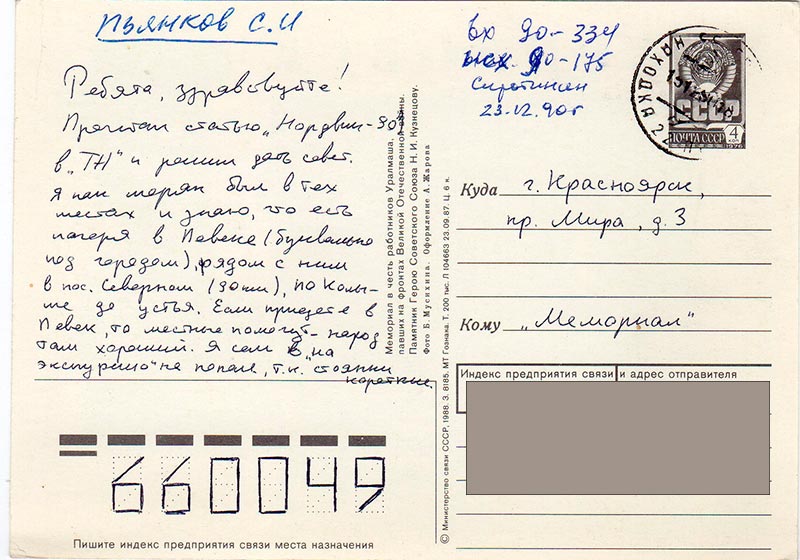 Пьянков С.И
Ребята, здравствуйте!
Прочитал статью „Нордвик-90"
в „ТН" и решил дать совет.
Я как моряк был в тех
местах и знаю, что есть
лагеря в Певеке (буквально
под городом), рядом с ним
в пос. Северном (30км), по Колы-
ме до устья. Если приедете в
Певек, то местные помогут - народ
там хороший. Я сам в „на
экскурсию" не попал, т.к. стоянки
короткие.
Вх 90-334
исх 90-175
Сиротинин
23.12.90г
СССР
ПОЧТА СССР
4
КОП
Мемориал в честь работников Уралмаша,
павших на фронтах Великой Отечественной войны.
Памятник Герою Советского Союза Н. И. Кузнецову.
Фото Б. Мусихина. Оформление А. Жарова
© Министерство связи СССР, 1988. З. 8185. МТ Гознака. Т. 200 тыс. Л 104663 23.09.87. Ц. 6 к.
Куда г. Красноярск,
пр. Мира, д. 3
Кому „Мемориал"
Индекс предприятия связи и адрес отправителя
660049
Пишите индекс предприятия связи места назначения